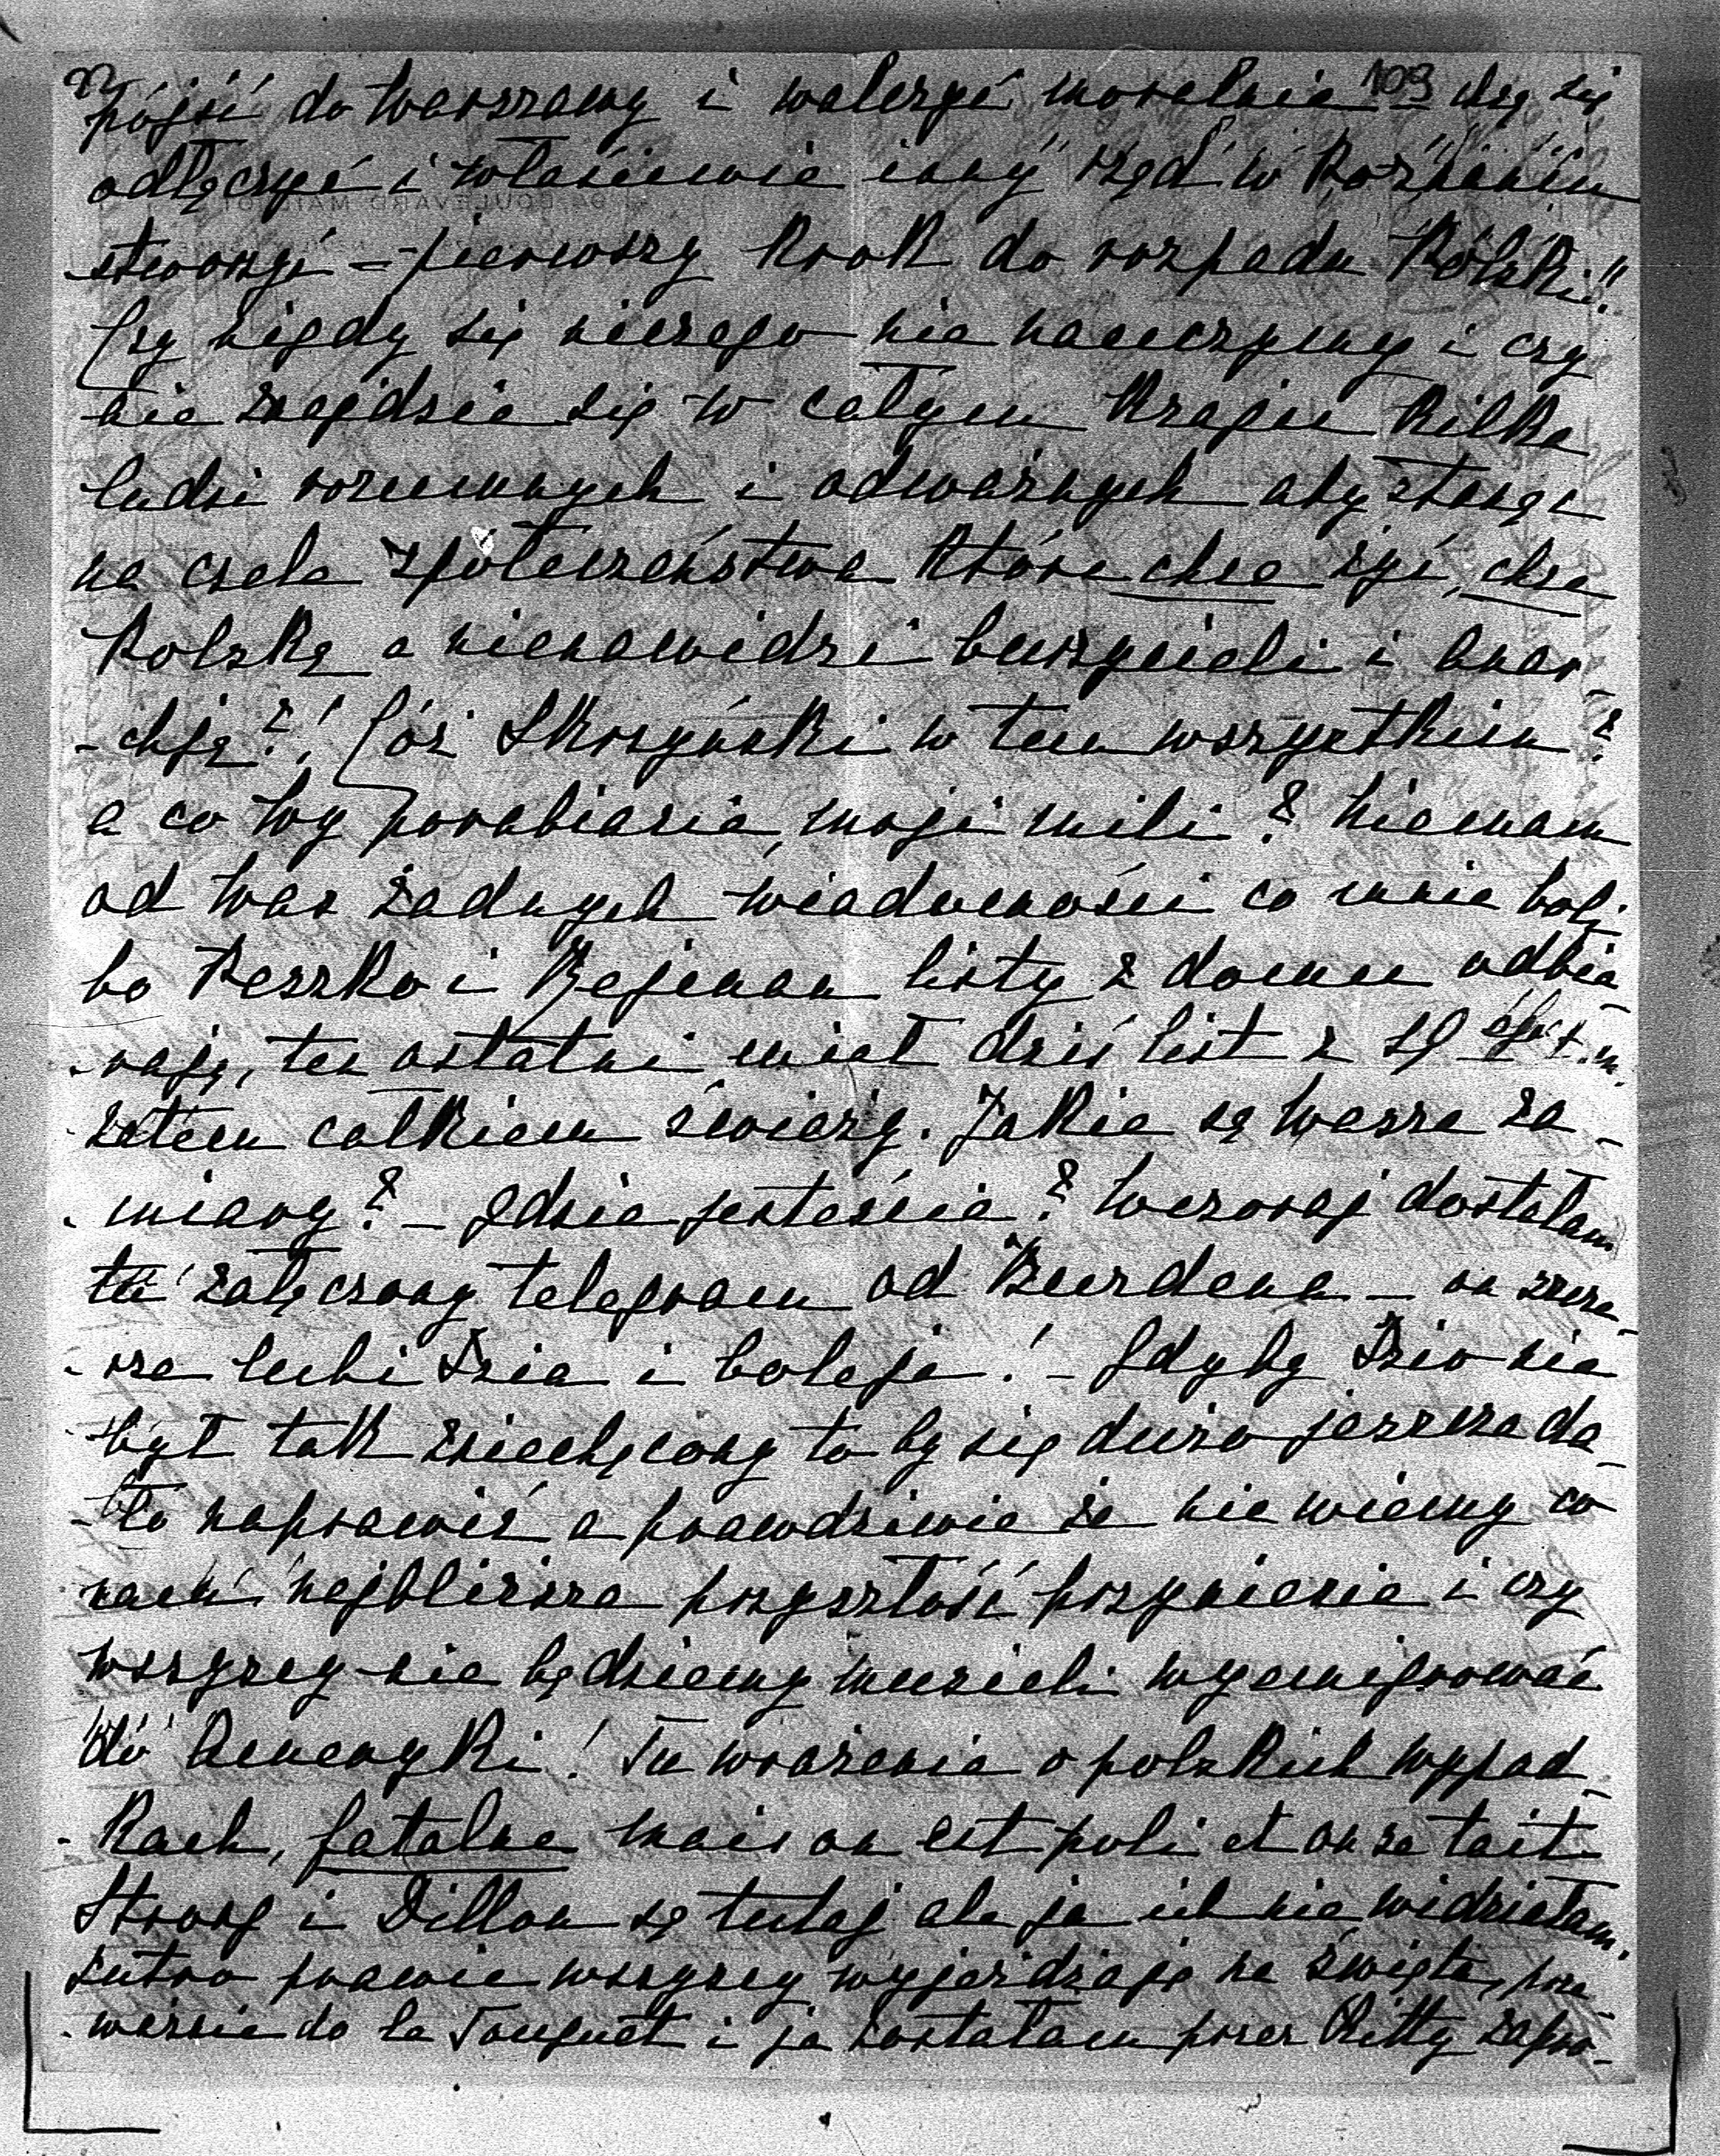 103
pójść do Warszawy i walczyć moralnie – chcą się
odłączyć i właściwie inny rząd w Poznaniu
stworzyć – pierwszy krok do rozpadu Polski!!
Czy nigdy się niczego nie nauczymy i czy
nie znajdzie się w całym kraju kilka
ludzi rozumnych i odważnych aby stanąć
na czele społeczeństwa które chce żyć, chce
Polskę a nienawidzi burzycieli i anar-
-chję?! Cóż Skrzyński w tem wszystkiem?
a co Wy porabiacie moji mili? Niemam
od Was żadnych wiadomości co mnie boli
bo Peszko i Bejeman listy z domu odbie-
-rają, ten ostatni miał dziś list z 18 t.m.
zatem całkiem świeży. Jakie są Wasze za-
-miary? – gdzie jesteście? Wczoraj dostałam
tu załączony telegram od Burdena – on szcze-
-rze lubi Dzia i boleje! – Gdyby Dzio nie
był tak zniechęcony to by się dużo jeszcze da-
-ło naprawić a prawdziwie że nie wiemy co
nam najbliższa przyszłość przyniesie i czy
wszyscy nie będziemy musieli wyemigrować
do Ameryki! Tu wrażenie o polskich wypad-
-kach, fatalne mais on est poli et on se tait.
Strong i Dillon są tutaj ale ja ich nie widziałam.
Jutro prawie wszyscy wyjeżdżają na święta, prze-
-ważnie do le Touquet i ja zostałam przez Kitty zapro-